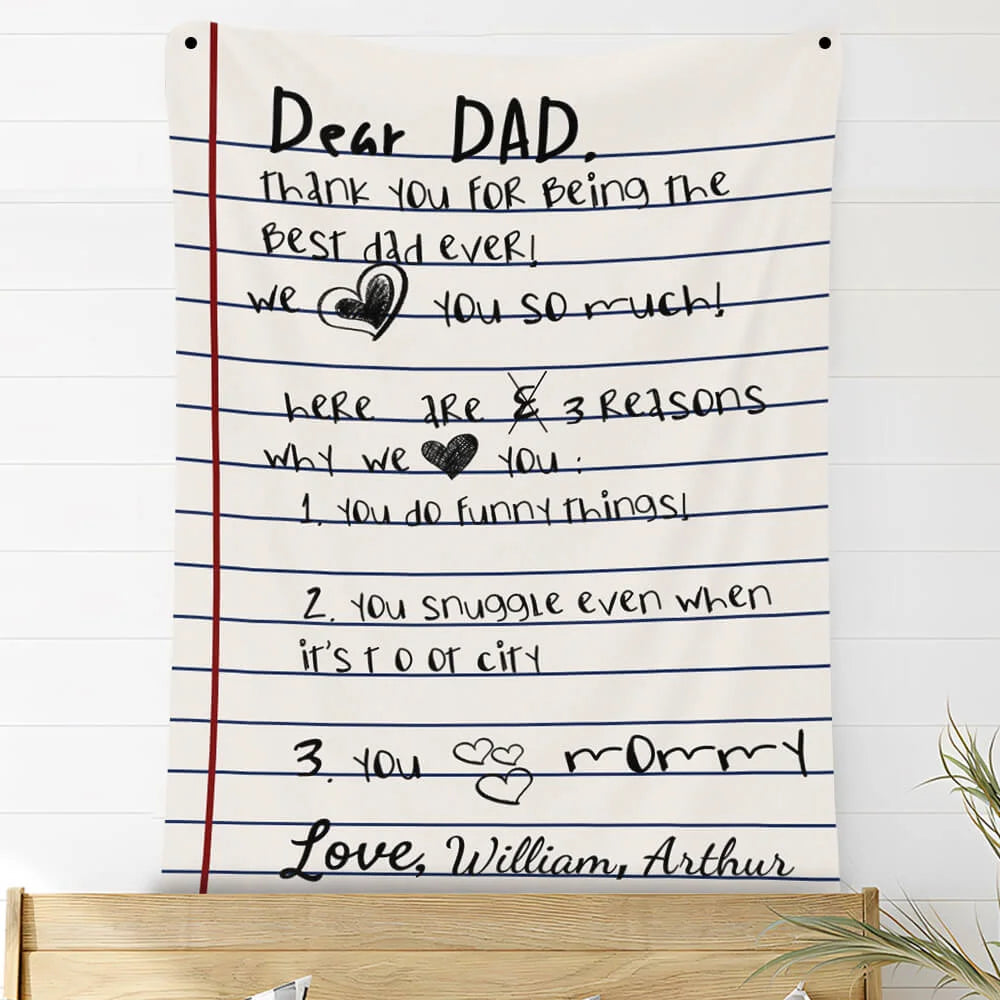 Dear DAD,
Thank you for being the
Best dad ever!
we you so much!
here are 3 Reasons
why we you :
1. you do funny things!
2. you snuggle even when
it's T O OT city
3. you mommy
Love, William, Arthur